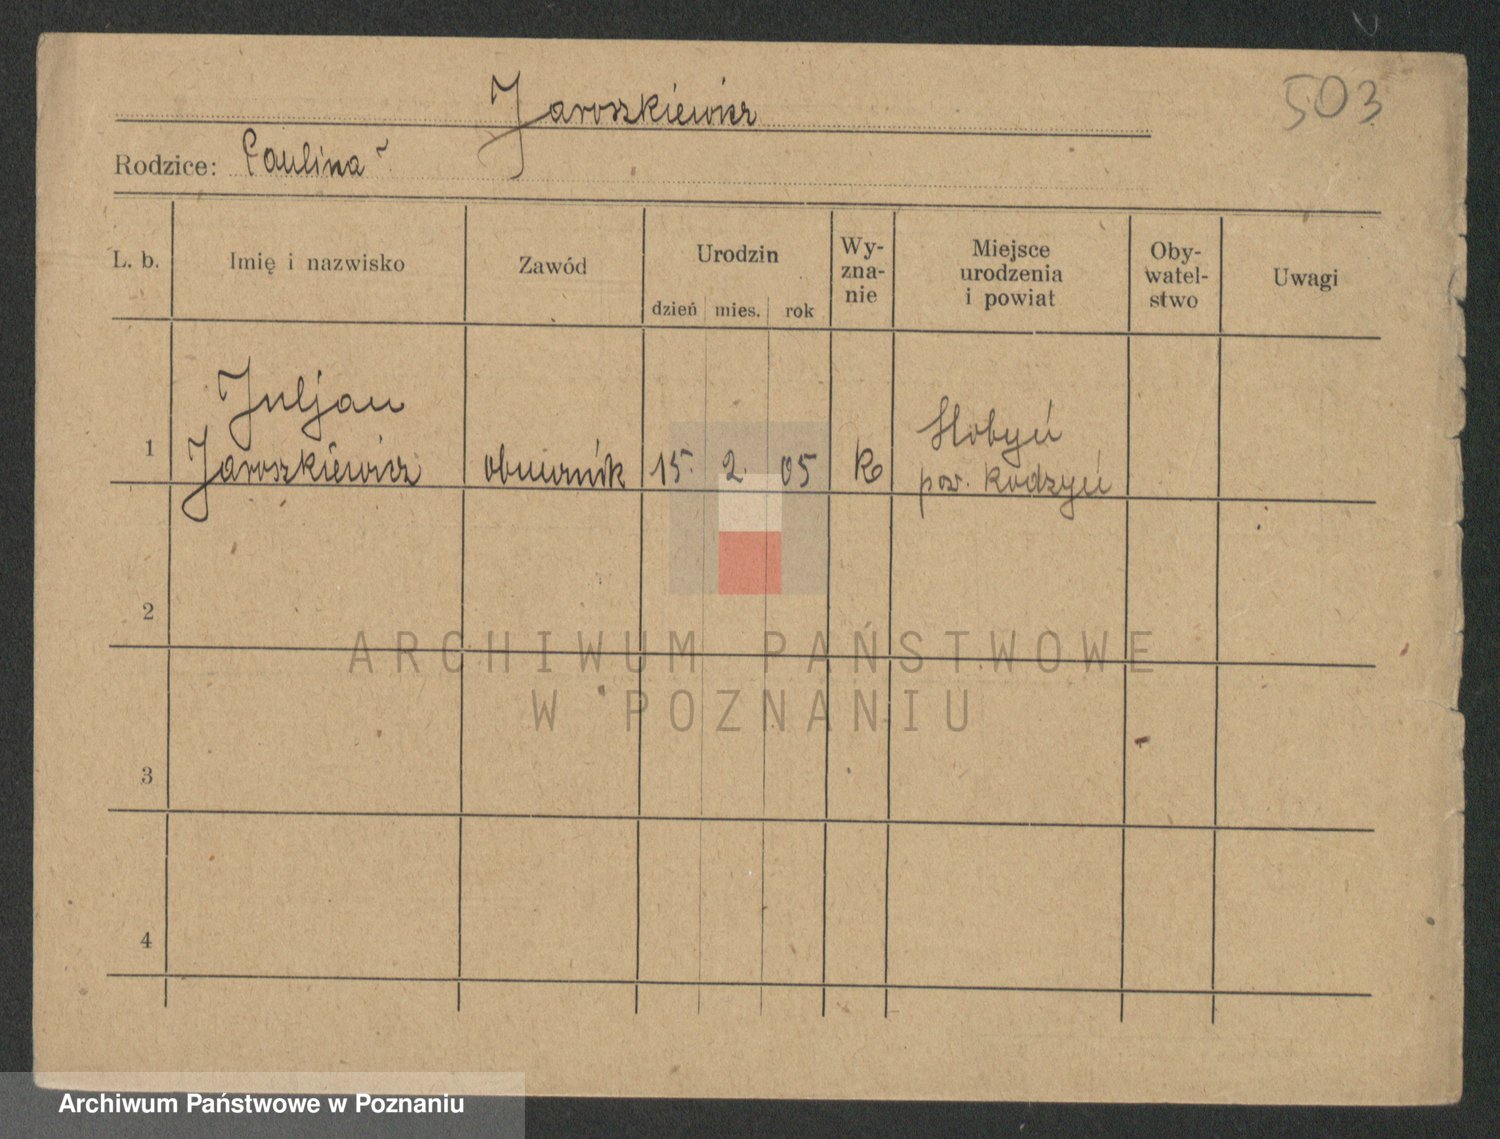 503
Jaroszkiewicz
Rodzice: Paulina
L. b. Imię i nazwisko Zawód Urodzin dzień mies. rok Wy-zna-nie Miejsce urodzenia i powiat Oby-watel-stwo Uwagi
Juljan
1 Jaroszkiewicz 15. 2. 05 K
pow.
2
3
4
ARCHIWUM PAŃSTWOWE
W POZNANIU
Archiwum Państwowe w Poznaniu